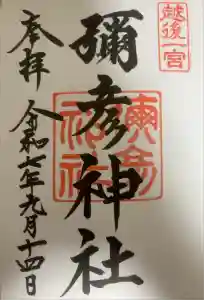 越後一宮
彌彦神社
奉拝
令和七年九月十四日